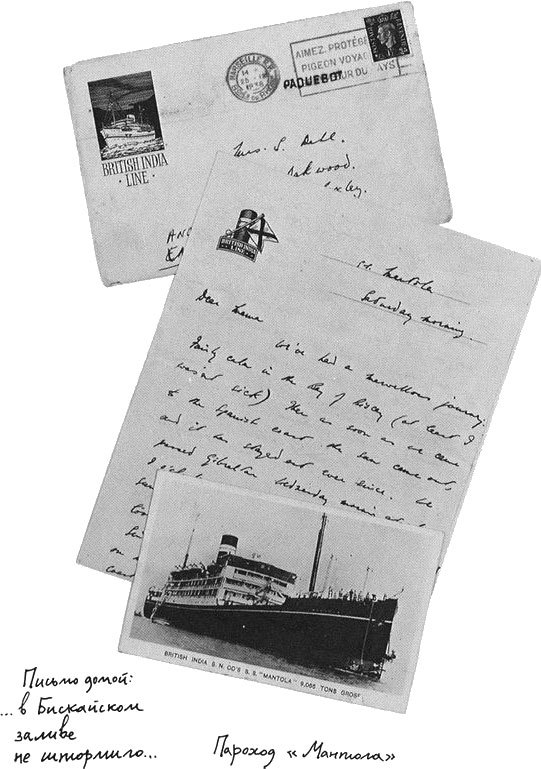 MARSEILLE GARE
14
25 IX
1938
AIMEZ, PROTÉGEZ
PIGEON VOYAG
PAQUEBOT
UR DU PAYS
BRITISH INDIA
· LINE ·
Mrs. S. Dahl.
Oakwood.
Bexley.
BRITISH INDIA
LINE
s.s. Mantola
Saturday morning.
Dear Mama
We've had a marvellous journey.
Fairly calm in the Bay of Biscay (at least I
wasn't sick) Then as soon as we came
to the Spanish coast the sun came out,
and it has stayed out ever since. We
passed Gibraltar Wednesday morning at
BRITISH INDIA S. N. CO'S S. S. "MANTOLA" 9,065 TONS GROSS
Письмо домой:
...в Бискайском
заливе
не штормило...
Пароход «Мантола»